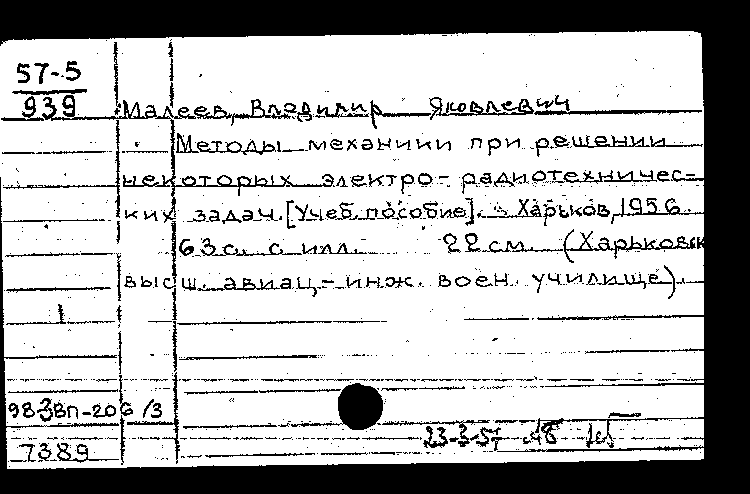 57-5
939
Малеев, Владимир Яковлевич
Методы механики при решении
некоторых электро-радиотехничес-
ких задач. [Учеб. пособие]. Харьков, 1956.
63 с. с илл. 22 см. (Харьковск
высш. авиац.-инж. воен. училище).
1
/3
7389
23-3-57